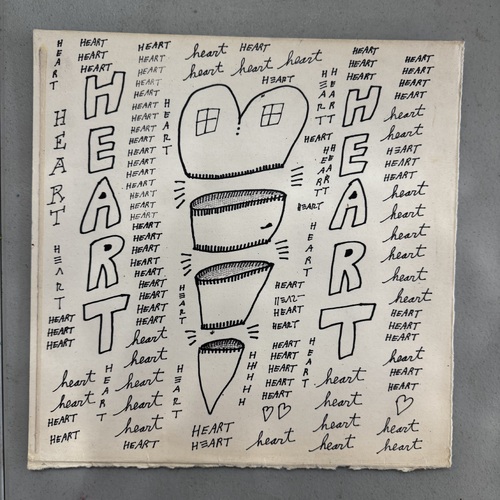 HEART
HEART
HEART
HEART
HEART
HEART
heart
heart
HEART
HEART
HEART
HEART
HEART
HEART
HEART
HEART
HEART
HEART
HEART
HEART
HEART
HEART
HEART
HEART
HEART
HEART
HEART
HEART
HEART
HEART
HEART
HEART
HEART
HEART
HEART
HEART
HEART
HEART
heart
heart
heart
heart
heart
HEART
HEART
HEART
HEART
heart HEART heart
heart heart heart
HEART
HEART
HEART
heart
HEART
HEART
HEART
HEART
HEART
HEART
HEART
HEART
HEART
HEART
HEART
HEART
HEART
HHHHH
HEART
HEART
HEART
HEART
HEART
heart
heart
heart
heart
HEART
HEART
HEART
HEART
heart
heart
HEART
HEART
HEART
heart
heart
heart
heart
heart
heart
HEART
HEART
HEART
heart
HEART
HEART
heart
heart